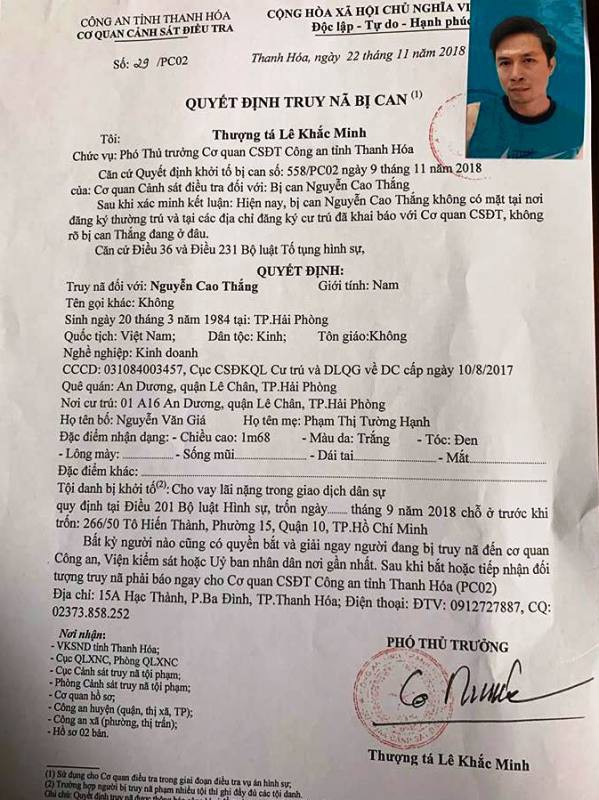 CÔNG AN TỈNH THANH HÓA
CƠ QUAN CẢNH SÁT ĐIỀU TRA
Số: 29 /PC02
CỘNG HÒA XÃ HỘI CHỦ NGHĨA VI
Độc lập - Tự do - Hạnh phúc
Thanh Hóa, ngày 22 tháng 11 năm 2018
QUYẾT ĐỊNH TRUY NÃ BỊ CAN (1)
Tôi: Thượng tá Lê Khắc Minh
Chức vụ: Phó Thủ trưởng Cơ quan CSĐT Công an tỉnh Thanh Hóa
Căn cứ Quyết định khởi tố bị can số: 558/PC02 ngày 9 tháng 11 năm 2018
của: Cơ quan Cảnh sát điều tra đối với: Bị can Nguyễn Cao Thắng
Sau khi xác minh kết luận: Hiện nay, bị can Nguyễn Cao Thắng không có mặt tại nơi
đăng ký thường trú và tại các địa chỉ đăng ký cư trú đã khai báo với Cơ quan CSĐT, không
rõ bị can Thắng đang ở đâu.
Căn cứ Điều 36 và Điều 231 Bộ luật Tố tụng hình sự,
QUYẾT ĐỊNH:
Truy nã đối với: Nguyễn Cao Thắng Giới tính: Nam
Tên gọi khác: Không
Sinh ngày 20 tháng 3 năm 1984 tại: TP.Hải Phòng
Quốc tịch: Việt Nam; Dân tộc: Kinh; Tôn giáo:Không
Nghề nghiệp: Kinh doanh
CCCD: 031084003457, Cục CSĐKQL Cư trú và DLQG về DC cấp ngày 10/8/2017
Quê quán: An Dương, quận Lê Chân, TP.Hải Phòng
Nơi cư trú: 01 A16 An Dương, quận Lê Chân, TP.Hải Phòng
Họ tên bố: Nguyễn Văn Giá Họ tên mẹ: Phạm Thị Tường Hạnh
Đặc điểm nhận dạng: - Chiều cao: 1m68 - Màu da: Trắng - Tóc: Đen
- Lông mày: - Sống mũi - Dái tai - Mắt
Đặc điểm khác:
Tội danh bị khởi tố(2): Cho vay lãi nặng trong giao dịch dân sự
quy định tại Điều 201 Bộ luật Hình sự, trốn ngày tháng 9 năm 2018 chỗ ở trước khi
trốn: 266/50 Tô Hiến Thành, Phường 15, Quận 10, TP.Hồ Chí Minh
Bất kỳ người nào cũng có quyền bắt và giải ngay người đang bị truy nã đến cơ quan
Công an, Viện kiểm sát hoặc Uỷ ban nhân dân nơi gần nhất. Sau khi bắt hoặc tiếp nhận đối
tượng truy nã phải báo ngay cho Cơ quan CSĐT Công an tỉnh Thanh Hóa (PC02)
Địa chỉ: 15A Hạc Thành, P.Ba Đình, TP.Thanh Hóa; Điện thoại: ĐTV: 0912727887, CQ:
02373.858.252
Nơi nhận:
- VKSND tỉnh Thanh Hóa;
- Cục QLXNC, Phòng QLXNC
- Cục Cảnh sát truy nã tội phạm;
- Phòng Cảnh sát truy nã tội phạm;
- Cơ quan hồ sơ;
- Công an huyện (quận, thị xã, TP);
- Công an xã (phường, thị trấn);
- Hồ sơ 02 bản.
PHÓ THỦ TRƯỞNG
Thượng tá Lê Khắc Minh
(1) Sử dụng cho Cơ quan điều tra trong giai đoạn điều tra vụ án hình sự;
(2) Trường hợp người bị truy nã phạm nhiều tội thì ghi đầy đủ các tội danh.
Ghi chú: Quyết định truy nã được thông báo